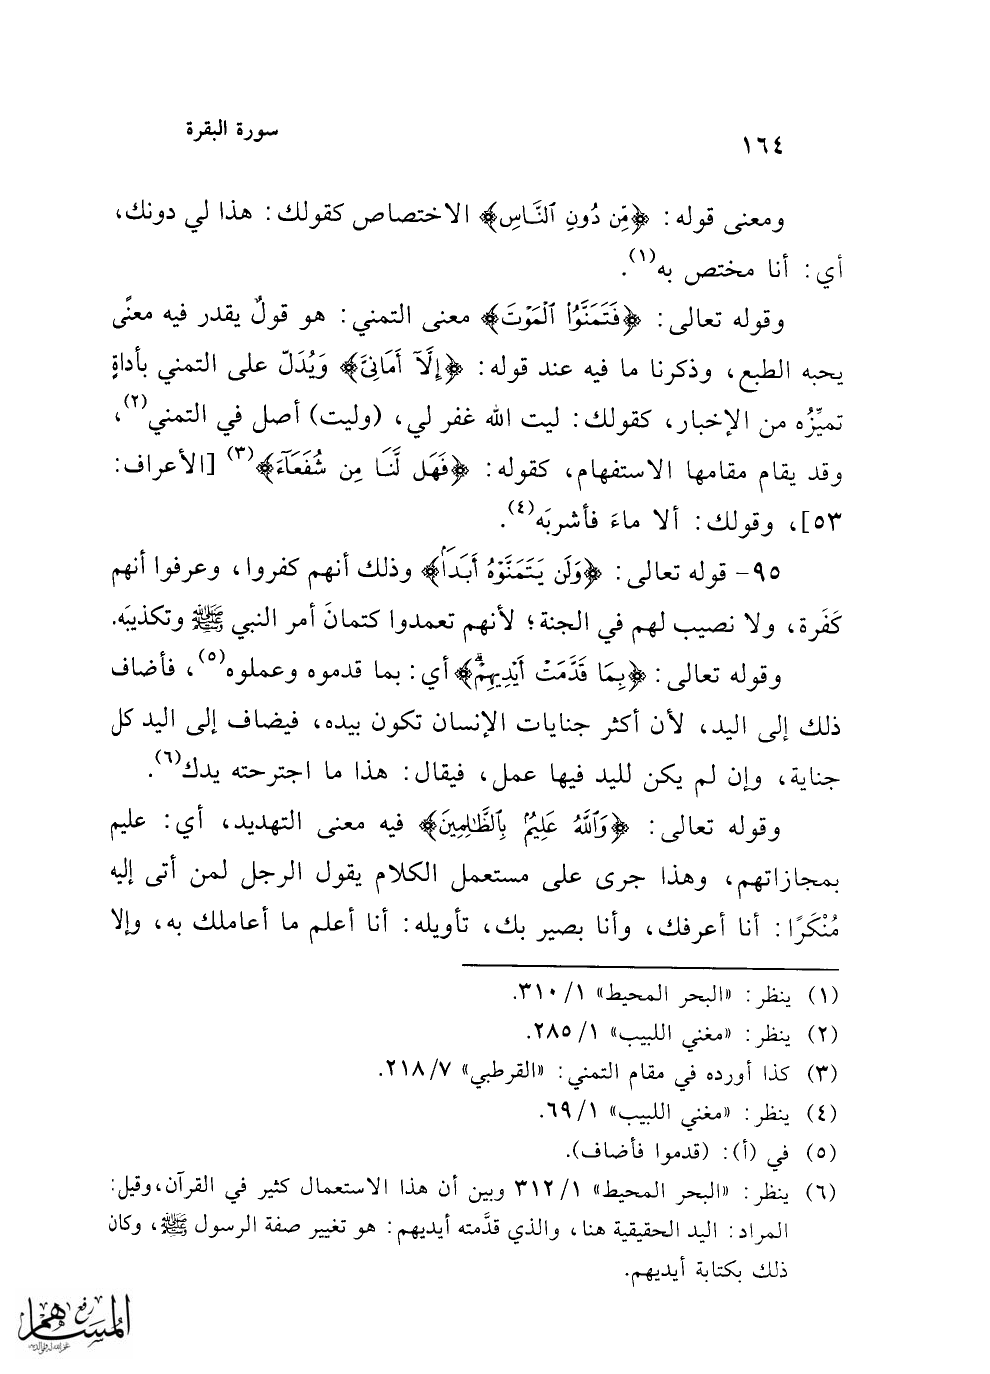 ١٦٤
سورة البقرة
ومعنى قوله: ﴿مِّن دُونِ ٱلنَّاسِ﴾ الاختصاص كقولك: هذا لي دونك،
أي: أنا مختص به(١).
وقوله تعالى: ﴿فَتَمَنَّوُاْ ٱلْمَوْتَ﴾ معنى التمني: هو قولٌ يقدر فيه معنًى
يحبه الطبع، وذكرنا ما فيه عند قوله: ﴿إِلَّآ أَمَانِىَّ﴾ وَيُدَلّ على التمني بأداةٍ
تميِّزُه من الإخبار، كقولك: ليت الله غفر لي، (وليت) أصل في التمني(٢)،
وقد يقام مقامها الاستفهام، كقوله: ﴿فَهَل لَّنَا مِن شُفَعَآءَ﴾(٣) [الأعراف:
٥٣]، وقولك: ألا ماءَ فأشربَه(٤).
٩٥- قوله تعالى: ﴿وَلَن يَتَمَنَّوْهُ أَبَدَۢا﴾ وذلك أنهم كفروا، وعرفوا أنهم
كَفَرة، ولا نصيب لهم في الجنة؛ لأنهم تعمدوا كتمانَ أمر النبي ﷺ وتكذيبَه.
وقوله تعالى: ﴿بِمَا قَدَّمَتْ أَيْدِيهِمْۗ﴾ أي: بما قدموه وعملوه(٥)، فأضاف
ذلك إلى اليد، لأن أكثر جنايات الإنسان تكون بيده، فيضاف إلى اليد كل
جناية، وإن لم يكن لليد فيها عمل، فيقال: هذا ما اجترحته يدك(٦).
وقوله تعالى: ﴿وَٱللَّهُ عَلِيمٌۢ بِٱلظَّٰلِمِينَ﴾ فيه معنى التهديد، أي: عليم
بمجازاتهم، وهذا جرى على مستعمل الكلام يقول الرجل لمن أتى إليه
مُنْكَرًا: أنا أعرفك، وأنا بصير بك، تأويله: أنا أعلم ما أعاملك به، وإلا
(١) ينظر: «البحر المحيط» ١/ ٣١٠.
(٢) ينظر: «مغني اللبيب» ١/ ٢٨٥.
(٣) كذا أورده في مقام التمني: «القرطبي» ٧/ ٢١٨.
(٤) ينظر: «مغني اللبيب» ١/ ٦٩.
(٥) في (أ): (قدموا فأضاف).
(٦) ينظر: «البحر المحيط» ١/ ٣١٢ وبين أن هذا الاستعمال كثير في القرآن،وقيل:
المراد: اليد الحقيقية هنا، والذي قدَّمته أيديهم: هو تغيير صفة الرسول ﷺ، وكان
ذلك بكتابة أيديهم.